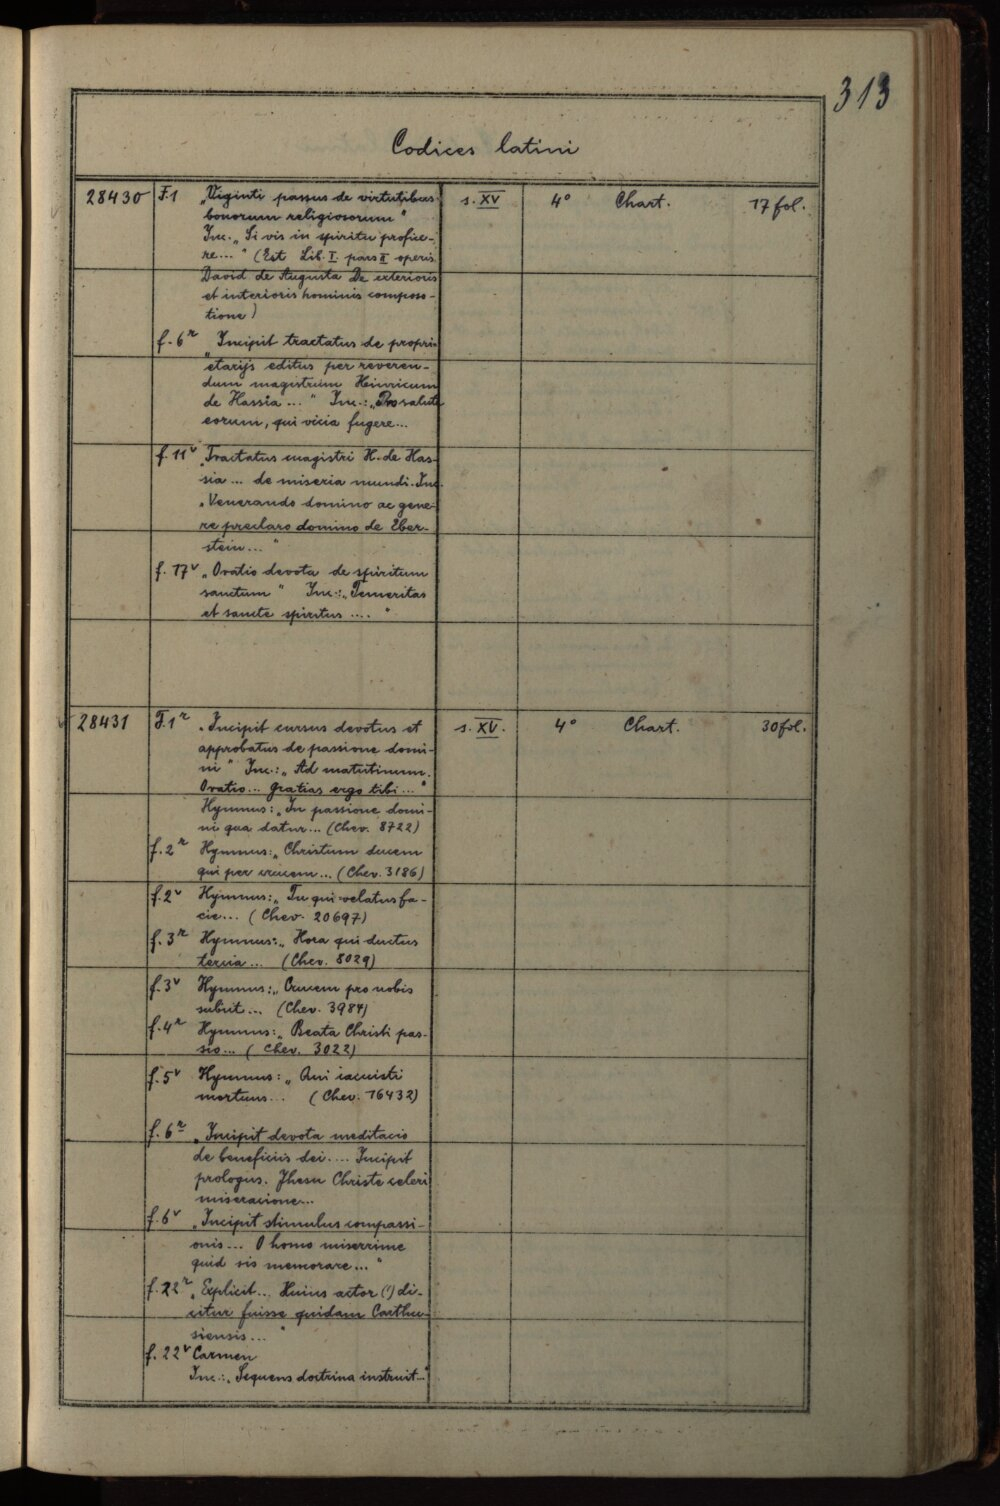 313
Codices latini
28430 F.1 „Viginti passus de virtutibus s. XV 4° Chart. 17 fol.
bonorum religiosorum"
Inc. „Si vis in spiritu profice-
re..." (Est Lib. I. pars II operis
David de Augusta De exterioris
et interioris hominis composi-
tione)
f. 6r „Incipit tractatus de propri-
etarijs editus per reveren-
dum magistrum Heinricum
de Hassia..." Inc.: „Pro salute
eorum, qui vicia fugere...
f. 11v „Tractatus magistri H. de Has-
sia... de miseria mundi. Inc.
„Venerando domino ac gene-
re preclaro domino de Eber-
stein..."
f. 17v „Oratio devota de spiritum
sanctum" Inc.: „Temeritas
et sancte spiritus ...."
28431 F.1r „Incipit cursus devotus et s. XV. 4° Chart. 30 fol.
approbatus de passione domi-
ni" Inc.: „Ad matutinum.
Oratio... gratias ergo tibi..."
Hymnus: „In passione domi-
ni qua datur... (Chev. 8722)
f. 2r Hymnus: „Christum ducem
qui per crucem... (Chev. 3186)
f. 2v Hymnus: „Tu qui velatus fa-
cie... (Chev. 20697)
f. 3r Hymnus: „Hora qui ductus
tercia... (Chev. 8029)
f. 3v Hymnus: „Crucem pro nobis
subiit... (Chev. 3984)
f. 4r Hymnus: „Beata Christi pas-
sio... (Chev. 3022)
f. 5v Hymnus: „Qui iacuisti
mortuus... (Chev. 16432)
f. 6r „Incipit devota meditacio
de beneficiis dei.... Incipit
prologus. Jhesu Christe celeri
miseracione...
f. 6v „Incipit stimulus compassi-
onis... O homo miserrime
quid sis memorare..."
f. 22r „Explicit... Huius actor (!) di-
citur fuisse quidam Carthu-
siensis..."
f. 22v Carmen
Inc.: „Sequens doctrina instruit..."